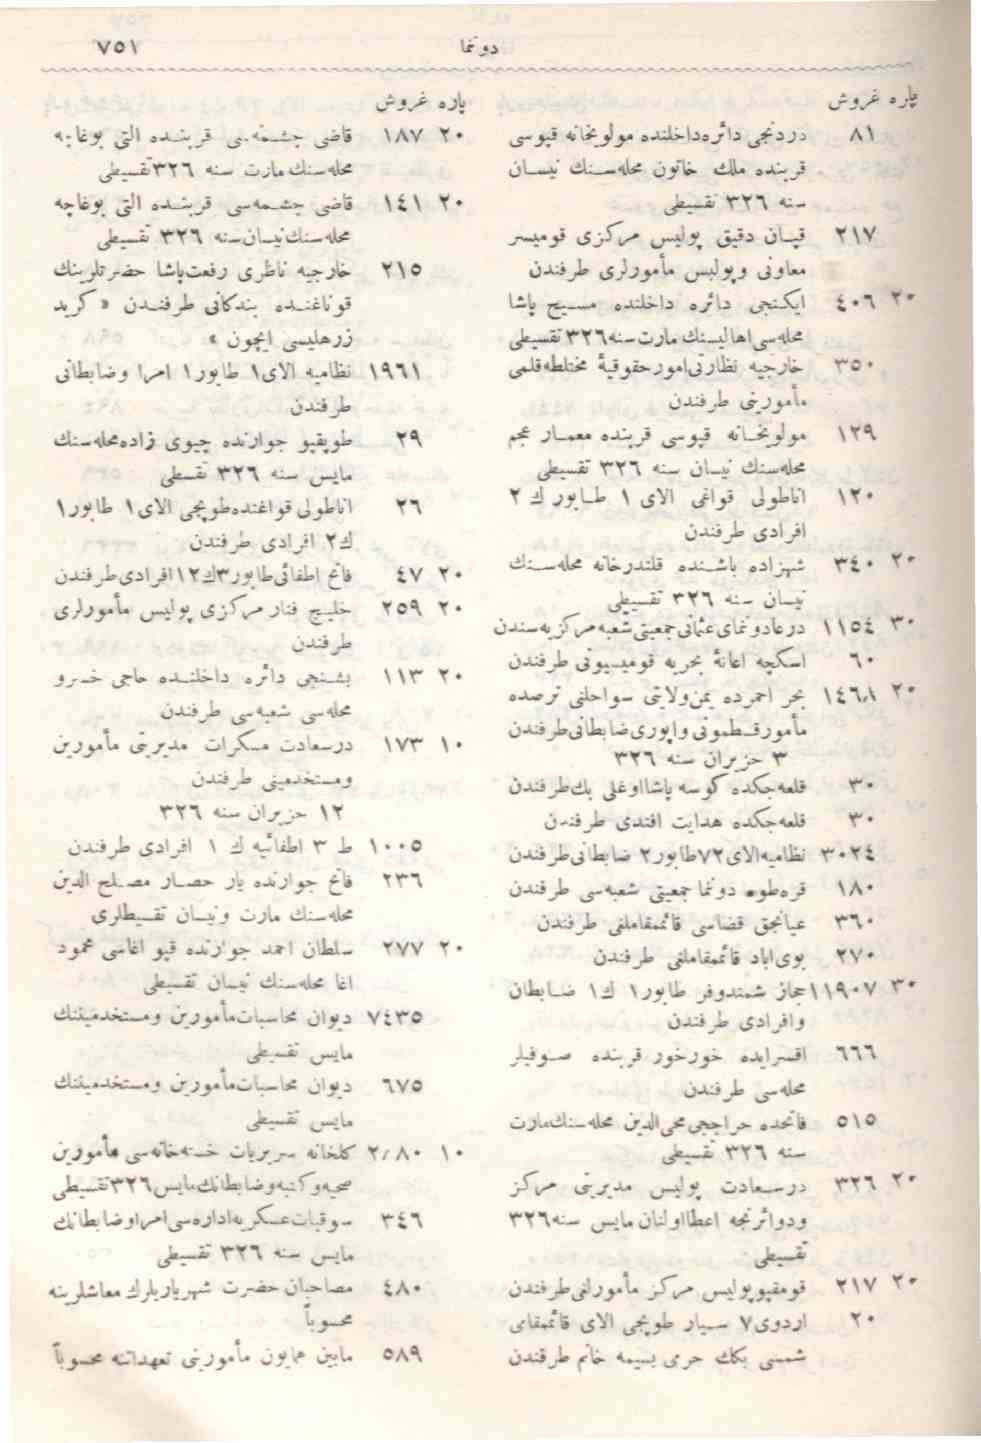 دوننما ٧٥١
پاره غروش
٨١ دردنجی دائره داخلنده مولویخانه قپوسی
قربنده ملك خاتون محله سنك نیسان
سنه ٣٢٦ تقسیطی
٢١٧ قپان دقیق پولیس مرکزی قومیسر
معاونی و پولیس مأمورلری طرفندن
٢٠ ٤٠٦ ایکنجی دائره داخلنده مسیح پاشا
محله سی اهالیسنك مارت سنه ٣٢٦ تقسیطی
٣٥٠ خارجیه نظارتی امور حقوقیهٔ مختلطه قلمی
مأمورینی طرفندن
١٢٩ مولویخانه قپوسی قربنده معمار عجم
محله سنك نیسان سنه ٣٢٦ تقسیطی
١٢٠ اناطولی قواغی الای ١ طابور ك ٢
افرادی طرفندن
٢٠ ٣٤٠ شهزاده باشنده قلندرخانه محله سنك
نیسان سنه ٣٢٦ تقسیطی
٣٠ ١١٥٤ درعادونمای عثمانی جمعیتی شعبه مرکزیه سندن
٦٠ اسکچه اعانهٔ بحریه قومیسیونی طرفندن
٢٠ بحر احمرده یمن ولایتی سواحلنی ترصده
مأمور قسطمونی واپوری ضابطانی طرفندن
٣ حزیران سنه ٣٢٦
٣٠ قلعه جکده کوسه پاشا اوغلی بك طرفندن
٣٠ قلعه جکده هدایت افندی طرفندن
٣٠٢٤ نظامیه الای ٧٢ طابور ٢ ضابطانی طرفندن
١٨٠ قره طوه دوننما جمعیتی شعبه سی طرفندن
٣٦٠ عیانجق قضاسی قائممقاملغی طرفندن
٢٧٠ بوی اباد قائممقاملغی طرفندن
٣٠ ١١٩٠٧ حجاز شمندوفر طابور ١ ك ١ ضابطان
وافرادی طرفندن
٦٦٦ اقسرایده خورخور قربنده صوفیلر
محله سی طرفندن
٥١٥ فاتحده حراجچی محی الدین محله سنك مارت
سنه ٣٢٦ تقسیطی
٢٠ ٣٢٦ درسعادت پولیس مدیریتی مرکز
ودوائرنجه اعطا اولنان مایس سنه ٣٢٦
تقسیطی
٢٠ ٢١٧ قومقپو پولیس مرکز مأمورلغی طرفندن
٢٠ اردوی ٧ سیار طوپجی الای قائممقامی
شمسی بكك حرمی بسیمه خانم طرفندن
پاره غروش
٢٠ ١٨٧ قاضی چشمه سی قربنده التی بوغاچه
محله سنك مارت سنه ٣٢٦ تقسیطی
٢٠ ١٤١ قاضی چشمه سی قربنده التی بوغاچه
محله سنك نیسان سنه ٣٢٦ تقسیطی
٢١٥ خارجیه ناظری رفعت پاشا حضرتلرینك
قوناغنده بندکانی طرفندن « کرید
زرهلیسی ایچون »
١٩٦١ نظامیه الای ١ طابور ١ امرا وضابطانی
طرفندن
٢٩ طوپقپو جوارنده چیوی زاده محله سنك
مایس سنه ٣٢٦ تقسیطی
٢٦ اناطولی قواغنده طوپجی الای ١ طابور ١
ك ٢ افرادی طرفندن
٢٠ ٤٧ فاتح اطفائی طابور ٣ ك ١٢ افرادی طرفندن
٢٠ ٢٥٩ خلیج فنار مرکزی پولیس مأمورلری
طرفندن
٢٠ ١١٣ بشنجی دائره داخلنده حاجی خسرو
محله سی شعبه سی طرفندن
١٠ ١٧٣ درسعادت مسکرات مدیریتی مأمورین
ومستخدمینی طرفندن
١٢ حزیران سنه ٣٢٦
١٠٠٥ ط ٣ اطفائیه ك ١ افرادی طرفندن
٢٣٦ فاتح جوارنده یار حصار مصلح الدین
محله سنك مارت ونیسان تقسیطلری
٢٠ ٢٧٧ سلطان احمد جوارنده قپو اغاسی محمود
اغا محله سنك نیسان تقسیطی
٧٤٣٥ دیوان محاسبات مأمورین ومستخدمیننك
مایس تقسیطی
٦٧٥ دیوان محاسبات مأمورین ومستخدمیننك
مایس تقسیطی
١٠ کلخانه سریریات خسته خانه سی مأمورین
صحیه وکتبه وضابطانك مایس ٣٢٦ تقسیطی
٣٤٦ سوقیات عسکریه اداره سی امرا وضابطانك
مایس سنه ٣٢٦ تقسیطی
٤٨٠ مصاحبان حضرت شهریاریلرك معاشلرینه
محسوباً
٥٨٩ مابین همایون مأمورینی تعهداتنه محسوباً